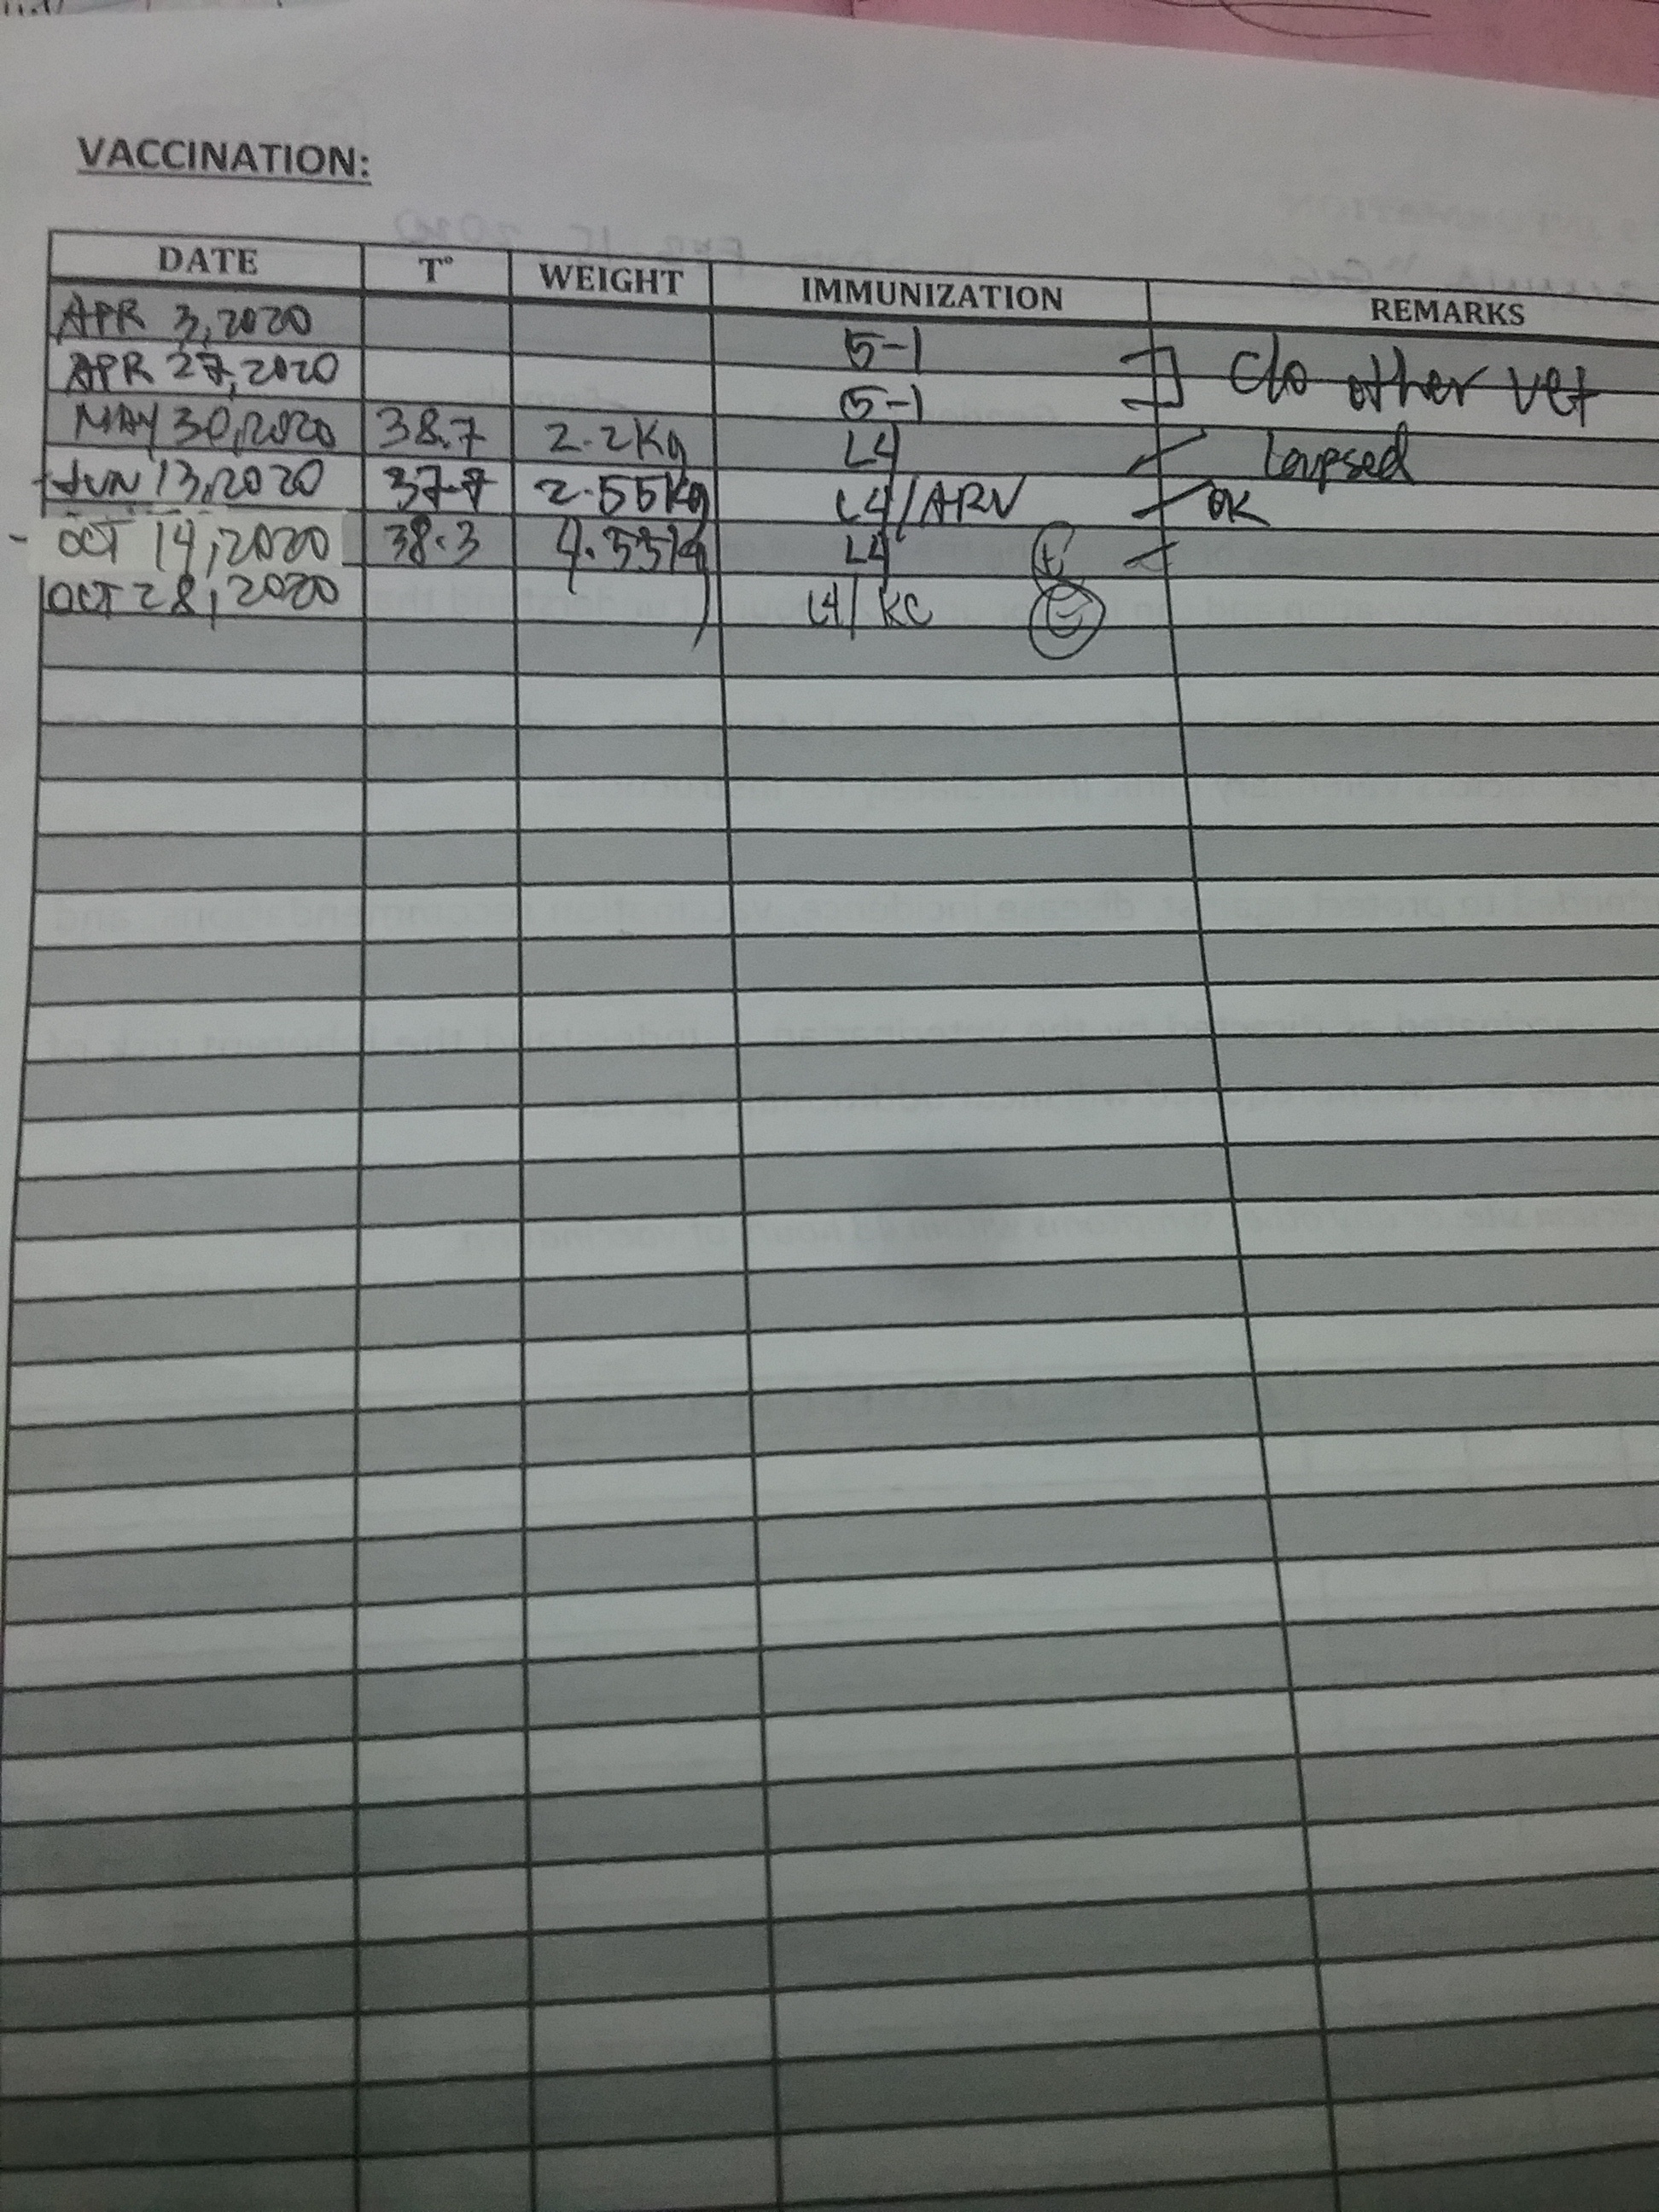 VACCINATION:
DATE T° WEIGHT IMMUNIZATION REMARKS
APR 3, 2020 5-1
APR 27, 2020 5-1 c/o other vet
MAY 30, 2020 38.7 2.2Kg L4 lapsed
JUN 13, 2020 37.7 2.55Kg L4/ARV OK
OCT 14, 2020 38.3 4.35kg L4
OCT 28, 2020 L4/KC